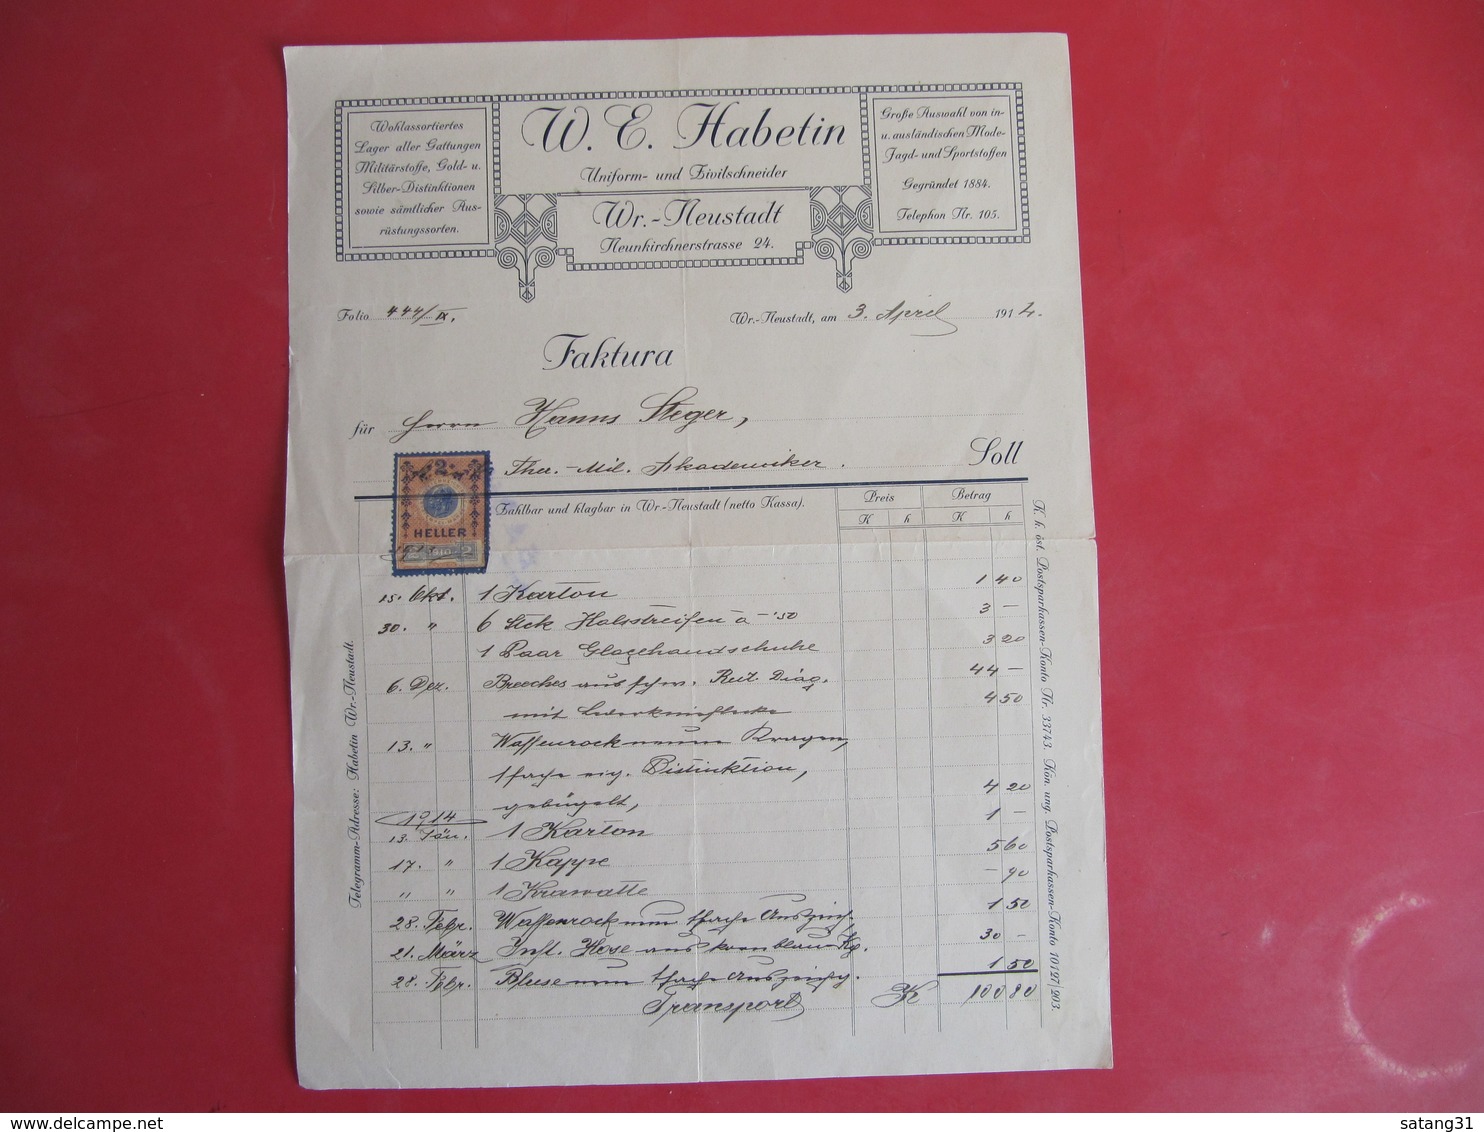 Wohlassortiertes
Lager aller Gattungen
Militärstoffe, Gold- u.
Silber-Distinktionen
sowie sämtlicher Aus-
rüstungssorten.
W. E. Habetin
Uniform- und Zivilschneider
Wr.-Neustadt
Neunkirchnerstrasse 24.
Große Auswahl von in-
u. ausländischen Mode-
Jagd- und Sportstoffen
Gegründet 1884.
Telephon Nr. 105.
Folio 444/IX.
Wr.-Neustadt, am 3. April 1914.
Faktura
für Herrn Hanns Steger,
Ther.-Mil. Akademiker.
Soll
2
HELLER
2 1910 2
Zahlbar und klagbar in Wr.-Neustadt (netto Kassa).
Preis Betrag
K h K h
15. Okt. 1 Karton 1 40
30. " 6 Stck Halsstreifen à -'50 3 —
1 Paar Glacehandschuhe 3 20
6. Dez. Breeches aus schw. Reit. Diag. 44 —
mit 4 50
13. " Waffenrock neuen Kragen,
1 fache eig. Distinktion,
gebügelt, 4 20
1914
13. Jän. 1 Karton 1 —
17. " 1 Kappe 5 60
" " 1 Krawatte — 90
28. Febr. Waffenrock 1 fache Auszeich. 1 50
21. März Inft. Hose aus kornblau 30 —
28. Febr. Bluse 1 fache Auszeichg. 1 50
Transport K 100 80
Telegramm-Adresse: Habetin Wr.-Neustadt.
K. k. öst. Postsparkassen-Konto Nr. 33743. Kön. ung. Postsparkassen-Konto 10127/203.
satang31